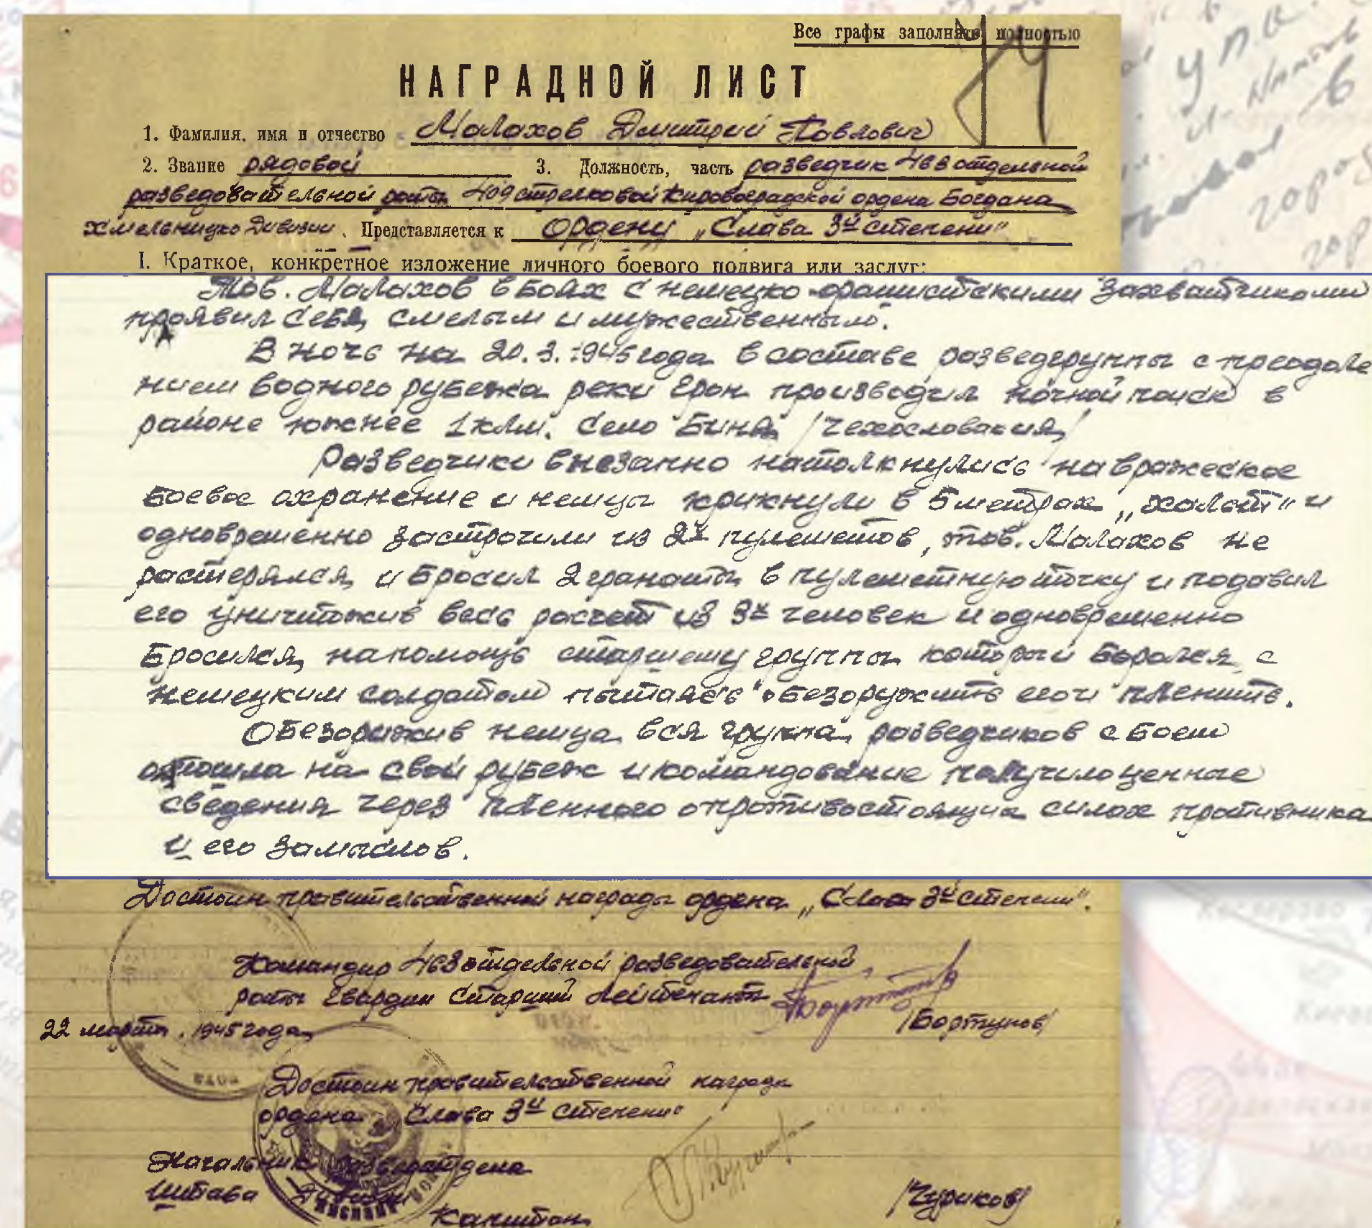 Все графы заполнять полностью
НАГРАДНОЙ ЛИСТ
1. Фамилия, имя и отчество Малахов Дмитрий Павлович
2. Звание рядовой 3. Должность, часть разведчик 463 отдельной
разведовательной роты 409 стрелковой Кировоградской ордена Богдана
Хмельницко Дивизии. Представляется к Ордену „Слава 3й степени"
I. Краткое, конкретное изложение личного боевого подвига или заслуг:
Тов. Малахов в боях с немецко-фашистскими захватчиками
проявил себя смелым и мужественным.
В ночь на 20.3.1945 года в составе разведгруппы с преодоле
нием водного рубежа реки Грон производил ночной поиск в
районе южнее 1 клм. село Бина /Чехословакия/
Разведчики внезапно натолкнулись на вражеское
боевое охранение и немцы крикнули в 5 метрах „халт" и
одновременно застрочили из 2х пулеметов, тов. Малахов не
растерялся и бросил 2 гранаты в пулеметную точку и подавил
его уничтожив весь расчет из 3х человек и одновременно
бросился на помощь старшему группы который боролся с
немецким солдатом пытаясь обезоружить его и пленить.
Обезоружив немца вся группа разведчиков с боем
отошла на свой рубеж и командование получило ценные
сведения через пленного о противостоящих силах противника
и его замыслов.
Достоин правительственной награды ордена „Слава 3й степени".
Командир 463 отдельной разведовательной
роты гвардии старший лейтенант
/Бортунов/
22 марта 1945 года
Достоин правительственной награды
ордена Слава 3й степени"
Начальник разведотдела
штаба Дивизии
Капитан /Чуриков/